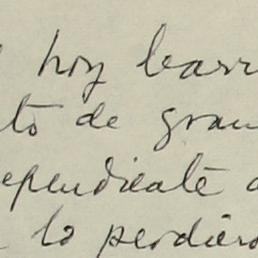 hoy barr
to de gran
ependicate a
lo perdiero